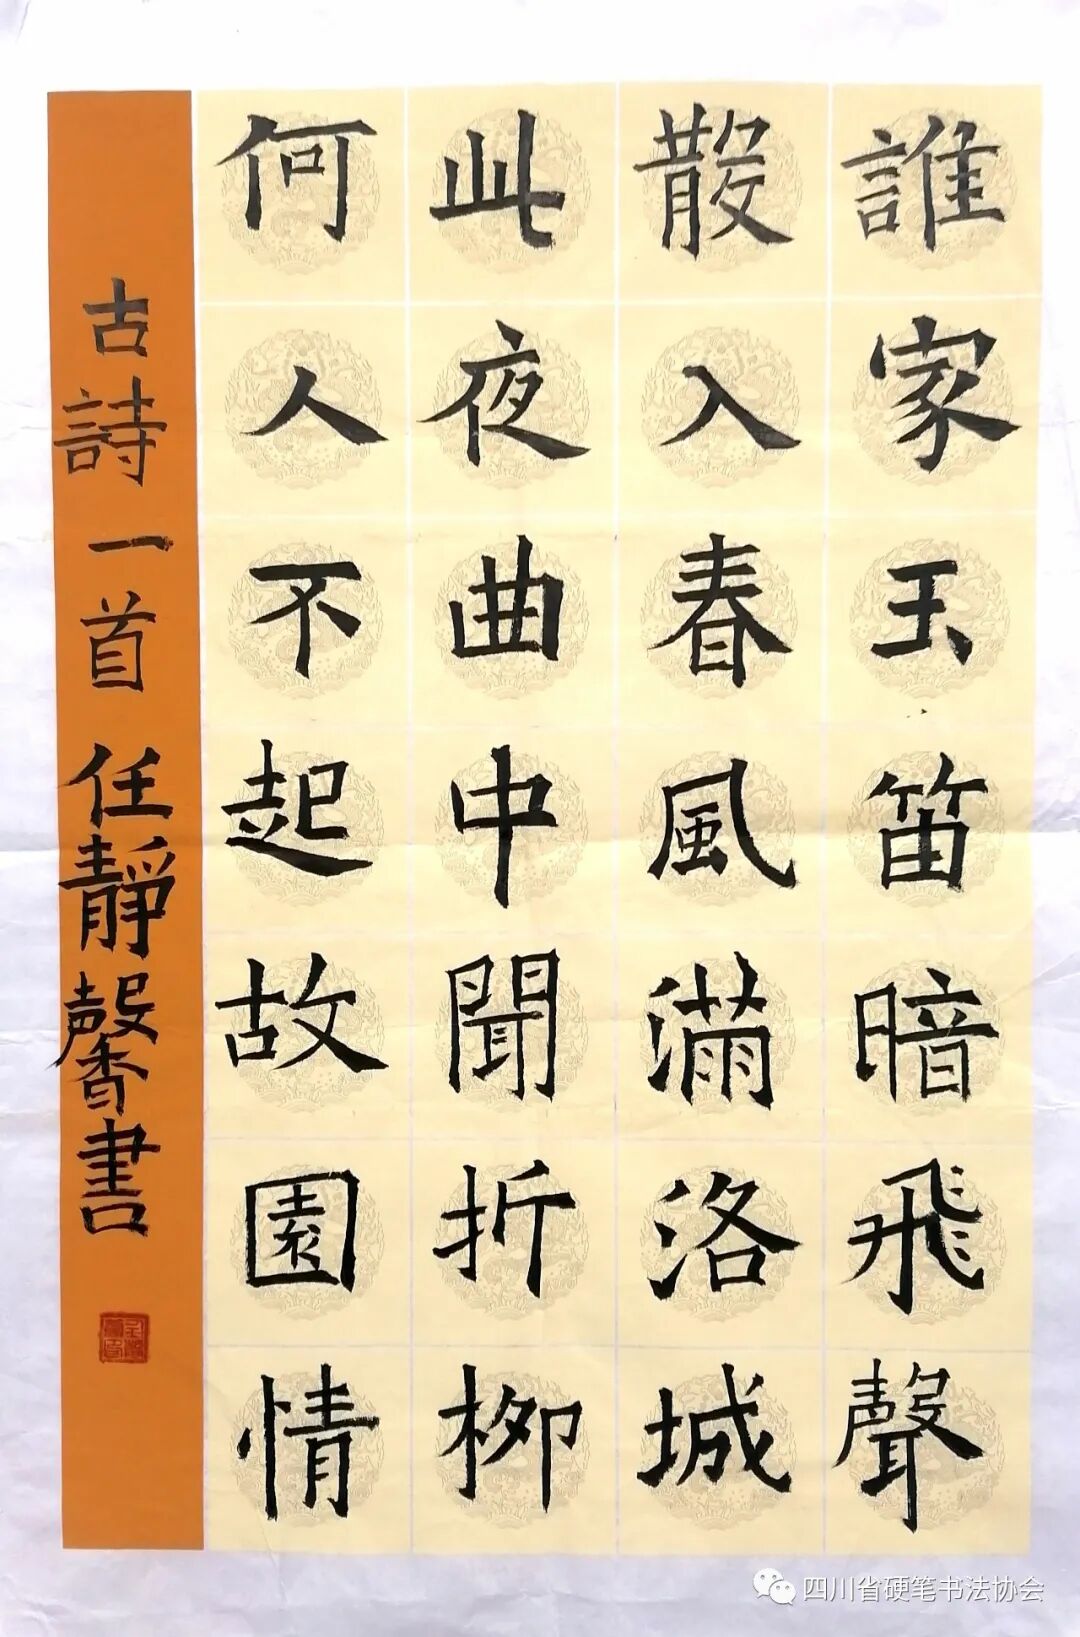 誰家玉笛暗飛聲
散入春風滿洛城
此夜曲中聞折柳
何人不起故園情
古詩一首 任靜馨書
四川省硬笔书法协会